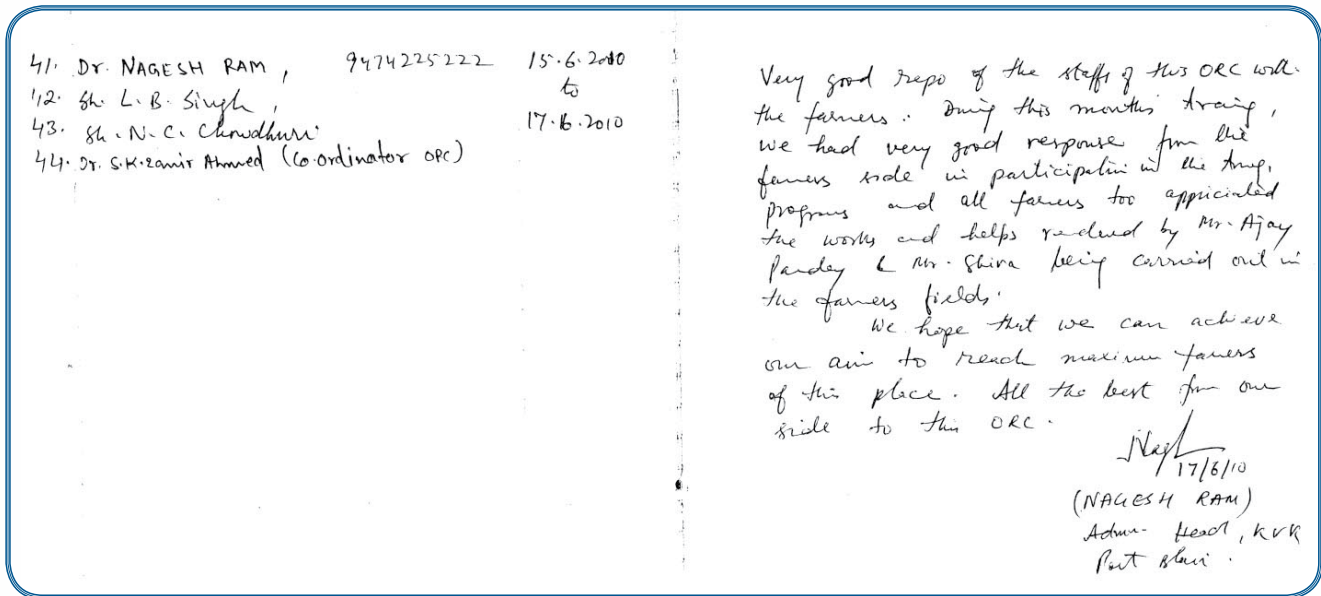 41. Dr. NAGESH RAM, 9474225222 15.6.2010
42. Sh. L. B. Singh, to
43. Sh. N. C. Chowdhuri 17.6.2010
44. Dr. S.K. Zamir Ahmed (Co-ordinator OPC)
Very good repo of the staffs of this ORC with
the farmers. During this months traing,
we had very good response from the
farmers side in participation in the trng.
programs and all farmers too appriciated
the works and helps rendered by Mr. Ajay
Pandey & Mr. Shiva being carried out in
the farmers fields.
We hope that we can achieve
our aim to reach maximum farmers
of this place. All the best from our
side to this ORC.
17/6/10
(NAGESH RAM)
Admn. Head, KVK
Port Blair.